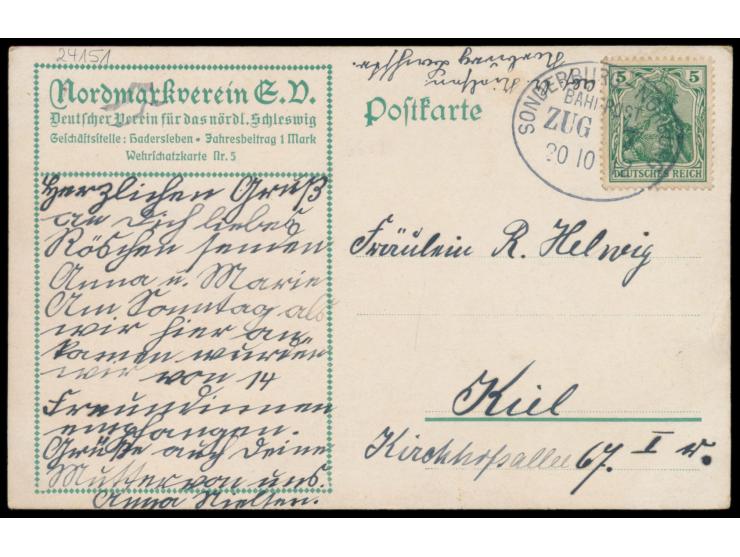 24151
Nordmarkverein E.V.
Deutscher Verein für das nördl. Schleswig
Geschäftsstelle: Hadersleben • Jahresbeitrag 1 Mark
Wehrschatzkarte Nr. 5
Herzlichen Gruß
an Dich liebes
Röschen senden
Anna u. Marie
Am Sonntag als
wir hier an-
kamen wurden
wir von 14
Freundinnen
empfangen.
Grüße auch Deine
Mutter von uns.
Anna Nielsen.
Postkarte
SONDERBURG
BAHNPOST
ZUG
20 10
5 5
DEUTSCHES REICH
Fräulein R. Helwig
Kiel
Kirchhofsallee 67. I r.